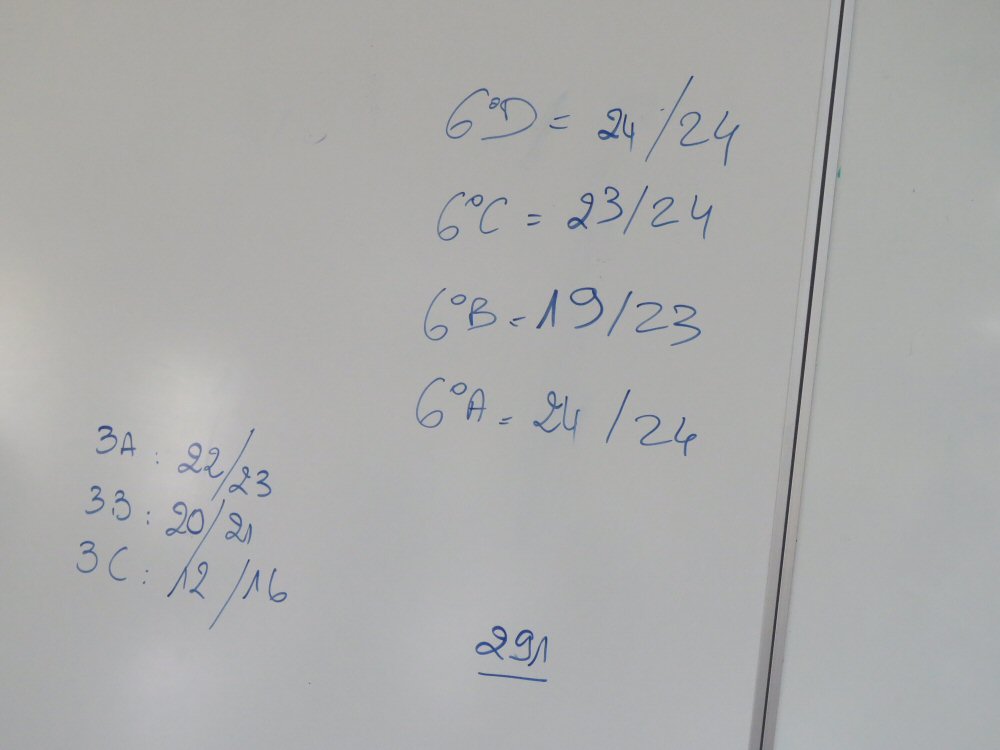 6°D = 24/24
6°C = 23/24
6°B = 19/23
6°A = 24/24
3A : 22/23
3B : 20/21
3C : 12/16
291